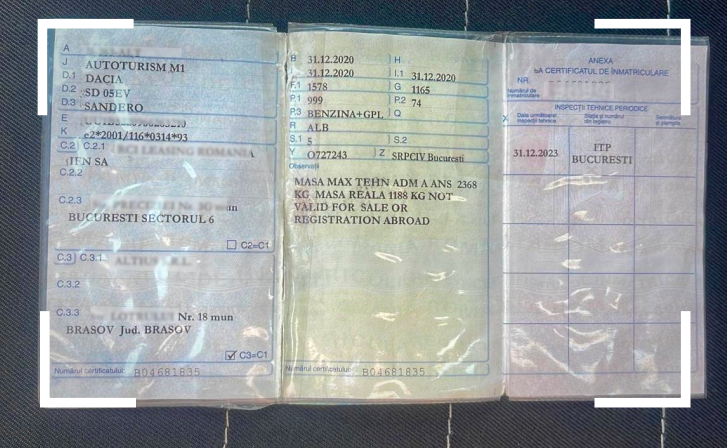 A
J AUTOTURISM M1
D.1 DACIA
D.2 SD 05EV
D.3 SANDERO
E
K e2*2001/116*0314*93
C.2 C.2.1
IEN SA
C.2.2
C.2.3
BUCURESTI SECTORUL 6
C2=C1
C.3 C.3.1
C.3.2
C.3.3 Nr. 18 mun
BRASOV Jud. BRASOV
C3=C1
Numărul certificatului: B04681835
B 31.12.2020 H
31.12.2020 I.1 31.12.2020
F.1 1578 G 1165
P.1 999 P.2 74
P.3 BENZINA+GPL Q
R ALB
S.1 5 S.2
Y O727243 Z SRPCIV Bucuresti
Observații
MASA MAX TEHN ADM A ANS 2368
KG MASA REALA 1188 KG NOT
VALID FOR SALE OR
REGISTRATION ABROAD
Numărul certificatului: B04681835
ANEXA
LA CERTIFICATUL DE ÎNMATRICULARE
NR.
Numărul de
înmatriculare
INSPECȚII TEHNICE PERIODICE
X Data următoarei
inspecții tehnice
Stația și numărul
din registru
Semnătura
și ștampila
31.12.2023
FTP
BUCURESTI